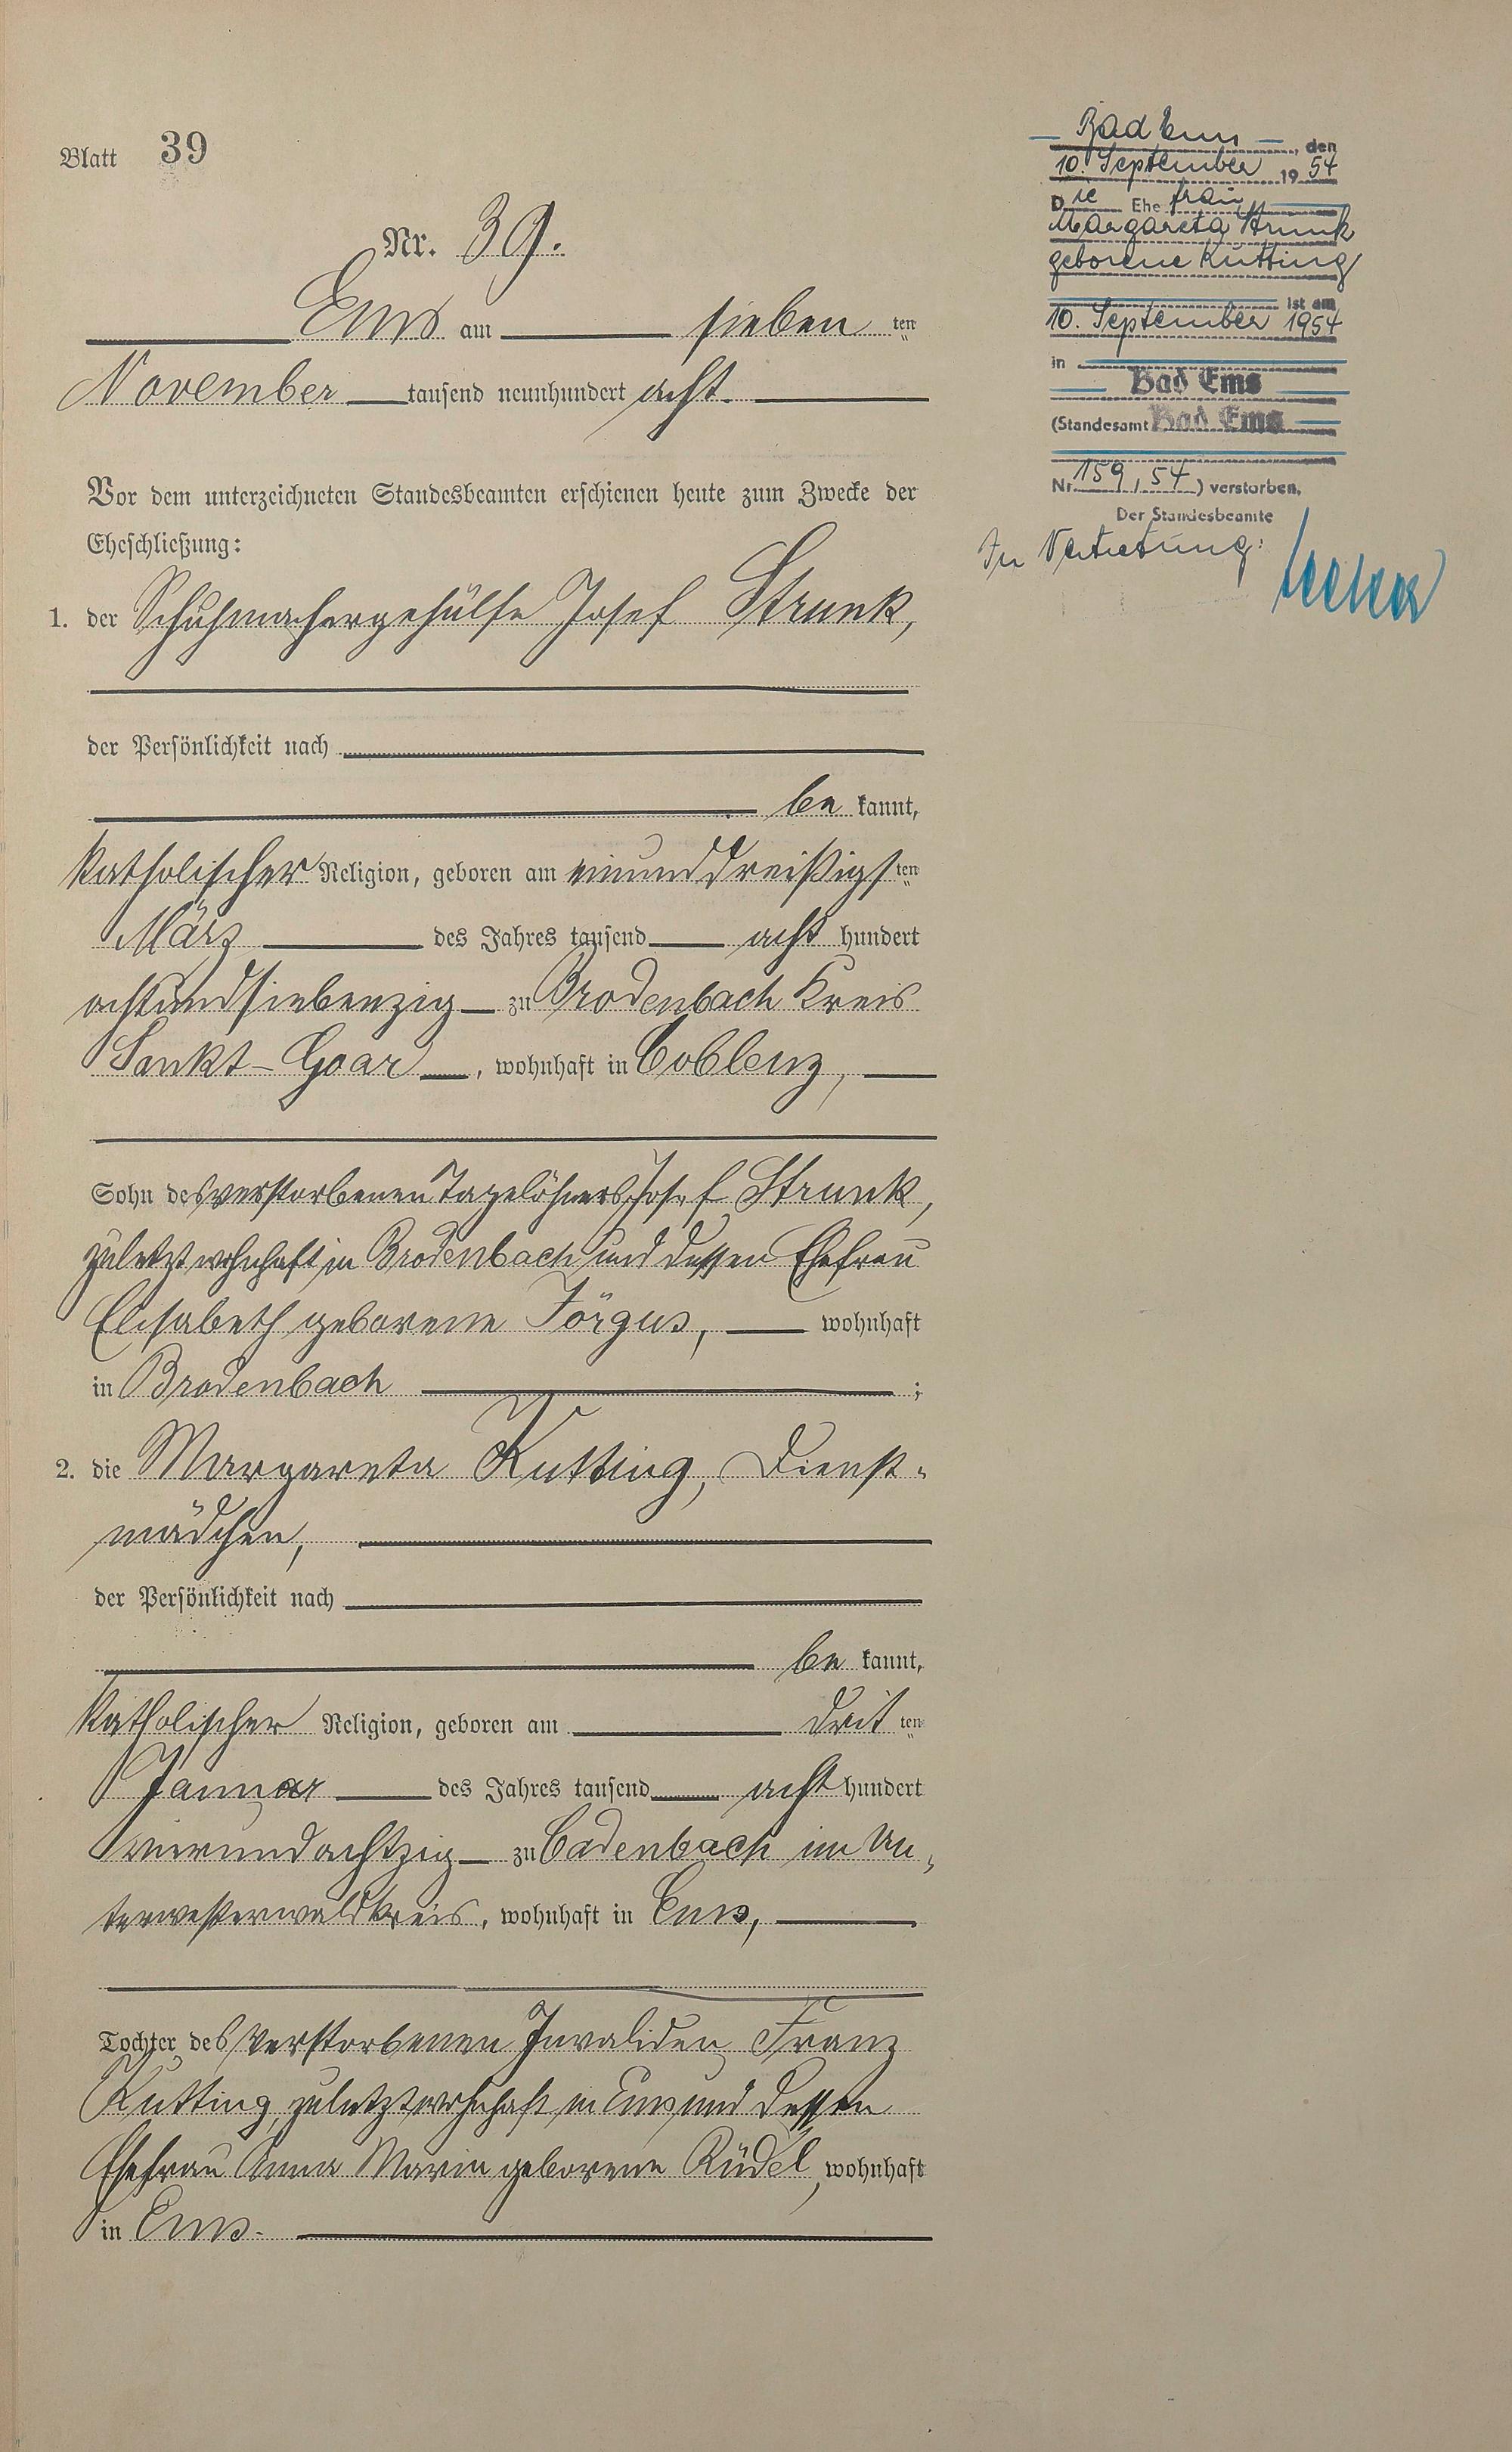 Blatt 39
Nr. 39.
Ems am sieben ten
November tausend neunhundert acht.
Vor dem unterzeichneten Standesbeamten erschienen heute zum Zwecke der
Eheschließung:
1. der Schuhmachergehülfe Josef Strunk,
der Persönlichkeit nach
be kannt,
katholischer Religion, geboren am einunddreißigs ten
März des Jahres tausend acht hundert
achtundsiebenzig zu Brodenbach Kreis
Sankt-Goar, wohnhaft in Coblenz,
Sohn des verstorbenen Tagelöhners Josef Strunk,
zuletzt wohnhaft in Brodenbach und dessen Ehefrau
Elisabeth geborene Jörgus, wohnhaft
in Brodenbach ;
2. die Margareta Kutting, Dienst-
mädchen,
der Persönlichkeit nach
be kannt,
katholischer Religion, geboren am drit ten
Januar des Jahres tausend acht hundert
vierundachtzig zu Cadenbach im Un-
terwesterwaldkreis, wohnhaft in Ems,
Tochter des verstorbenen Invaliden Franz
Kutting, zuletzt wohnhaft in Ems und dessen
Ehefrau Anna Maria geborene Rüdel, wohnhaft
in Ems.
Bad Ems, den
10. September 19 54
Die Ehe frau
Margareta Strunk
geborene Kutting
ist am
10. September 1954
in
Bad Ems
(Standesamt Bad Ems
Nr. 159, 54) verstorben.
Der Standesbeamte
In Vertretung: